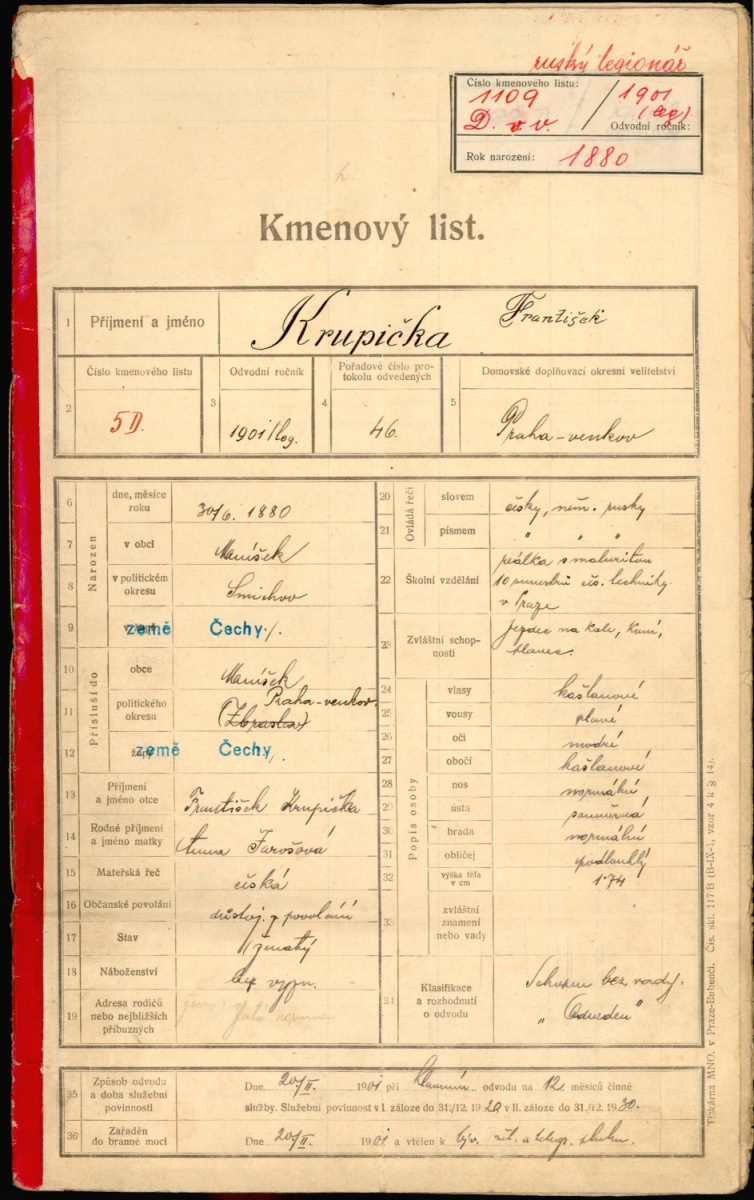 ruský legionář
Číslo kmenového listu:
1109 / 1901
D. v. v. (leg)
Odvodní ročník:
Rok narození: 1880
Kmenový list.
1 Příjmení a jméno Krupička František
Číslo kmenového listu Odvodní ročník Pořadové číslo protokolu odvedených Domovské doplňovací okresní velitelství
2 5D. 3 1901/leg. 4 46. 5 Praha-venkov
Narozen
6 dne, měsíce roku 30/6. 1880
7 v obci Maníšek
8 v politickém okresu Smíchov
9 země Čechy
Přísluší do
10 obce Maníšek
11 politického okresu Praha-venkov
(Zbraslav)
12 župy země Čechy
13 Příjmení a jméno otce František Krupička
14 Rodné příjmení a jméno matky Anna Jarošová
15 Mateřská řeč česká
16 Občanské povolání důstoj. z povolání
17 Stav ženatý
18 Náboženství bez vyzn.
19 Adresa rodičů nebo nejbližších příbuzných
Ovládá řeči
20 slovem česky, něm. rusky
21 písmem " " "
22 Školní vzdělání reálka s maturitou
10 semestrů čes. techniky
v Praze
23 Zvláštní schopnosti jezdec na kole, koni,
plavec.
Popis osoby
24 vlasy kaštanové
25 vousy plavé
26 oči modré
27 obočí kaštanové
28 nos normální
29 ústa souměrná
30 brada normální
31 obličej podlouhlý
32 výška těla v cm 174
33 zvláštní znamení nebo vady
34 Klasifikace a rozhodnutí o odvodu Schopen bez vady.
„Odveden"
35 Způsob odvodu a doba služební povinnosti Dne 20/II. 1901 při hlavním odvodu na 12 měsíců činné
služby. Služební povinnost v I. záloze do 31./12. 1920, v II. záloze do 31./12. 1930.
36 Zařaděn do branné moci Dne 20/II. 1901 a vtělen k býv. žel. a telegr. pluku.
Tiskárna MNO. v Praze-Bubenči. Čís. skl. 117/B (B-IX-1, vzor 4 k § 14).